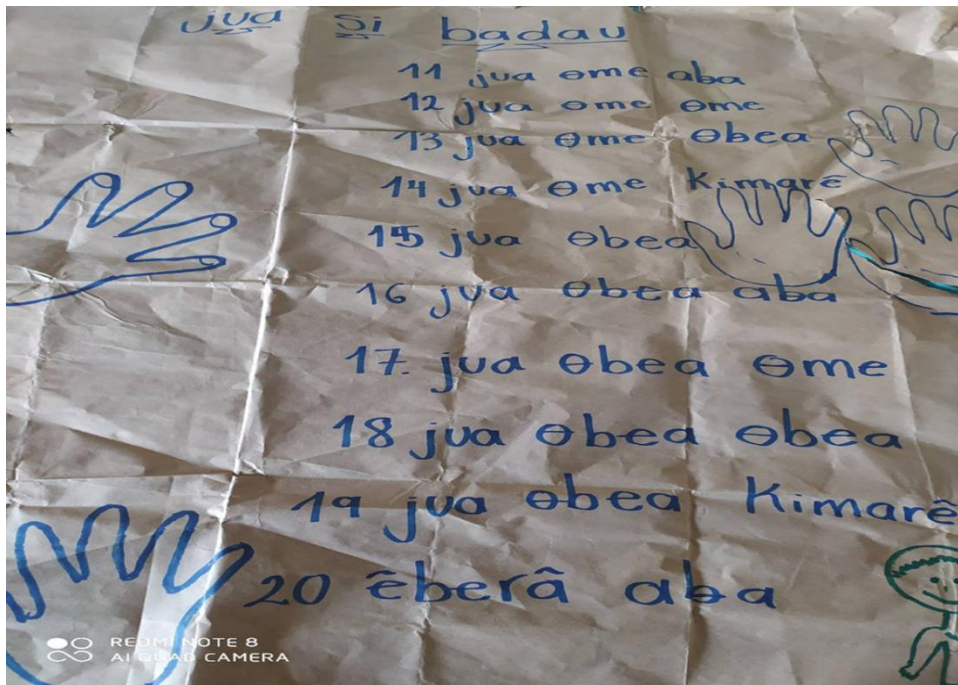 jua si badau
11 jua ɵme aba
12 jua ɵme ɵme
13 jua ɵme ɵbea
14 jua ɵme kimarê
15 jua ɵbea
16 jua ɵbea aƀa
17. jua ɵbea ɵme
18 jua ɵbea ɵbea
19 jua ɵbea kimarê
20 ēberâ aƀa
REDMI NOTE 8
AI QUAD CAMERA